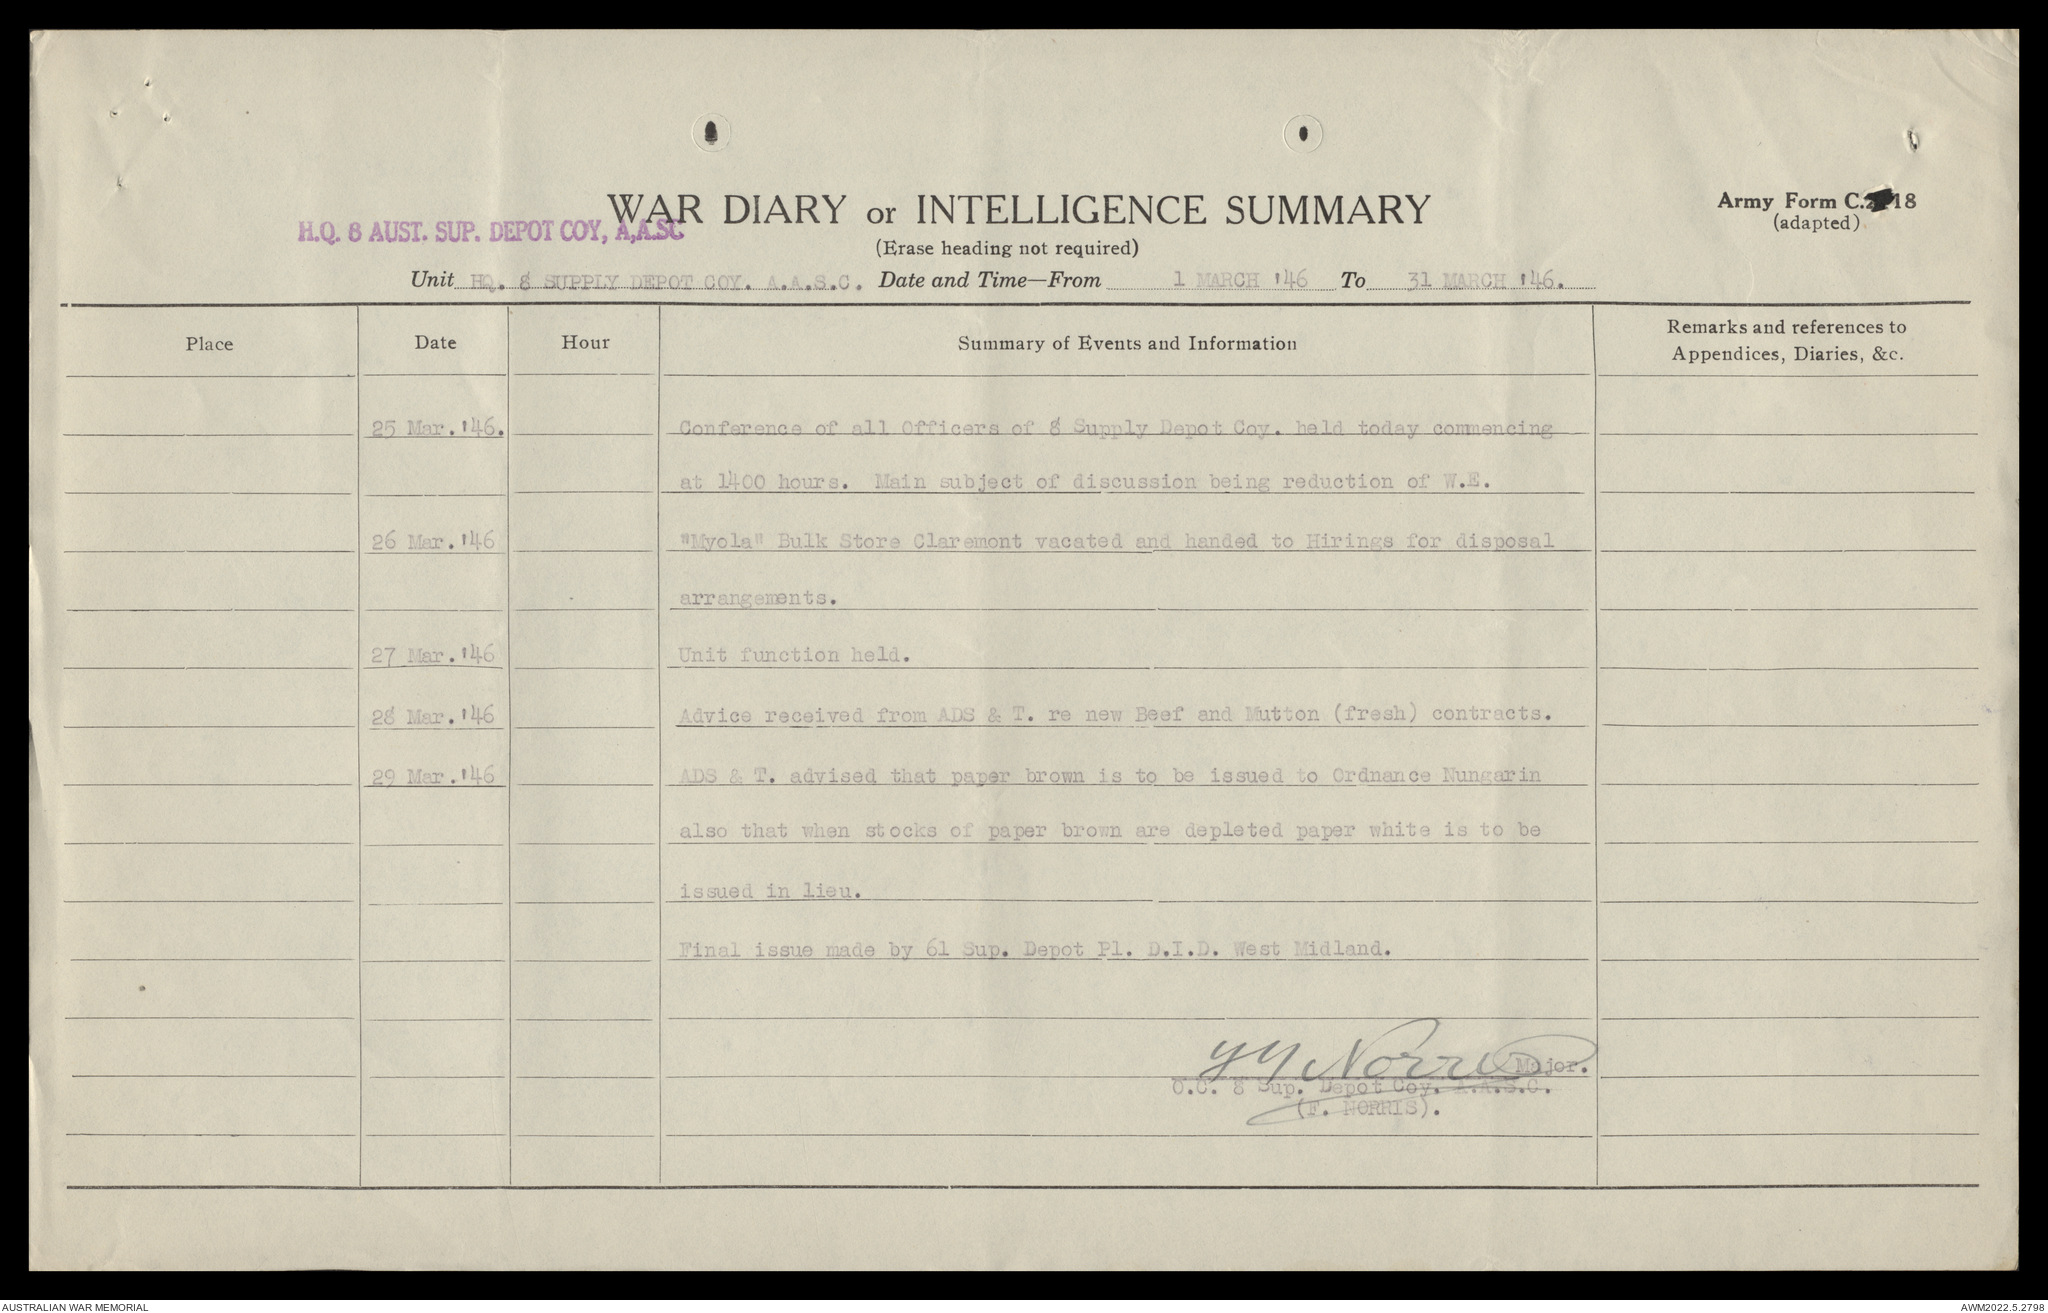 WAR DIARY or INTELLIGENCE SUMMARY
Army Form C.2118
(adapted)
H.Q. 8 AUST. SUP. DEPOT COY, A,A.SC
(Erase heading not required)
Unit HQ. 8 SUPPLY DEPOT COY. A.A.S.C. Date and Time—From 1 MARCH '46 To 31 MARCH '46.
Place Date Hour Summary of Events and Information Remarks and references to
Appendices, Diaries, &c.
25 Mar.'46. Conference of all Officers of 8 Supply Depot Coy. held today commencing
at 1400 hours. Main subject of discussion being reduction of W.E.
26 Mar.'46 "Myola" Bulk Store Claremont vacated and handed to Hirings for disposal
arrangements.
27 Mar.'46 Unit function held.
28 Mar.'46 Advice received from ADS & T. re new Beef and Mutton (fresh) contracts.
29 Mar.'46 ADS & T. advised that paper brown is to be issued to Ordnance Nungarin
also that when stocks of paper brown are depleted paper white is to be
issued in lieu.
Final issue made by 61 Sup. Depot Pl. D.I.D. West Midland.
Norris Major.
O.C. 8 Sup. Depot Coy. A.A.S.C.
(F. NORRIS).
AUSTRALIAN WAR MEMORIAL
AWM2022.5.2798